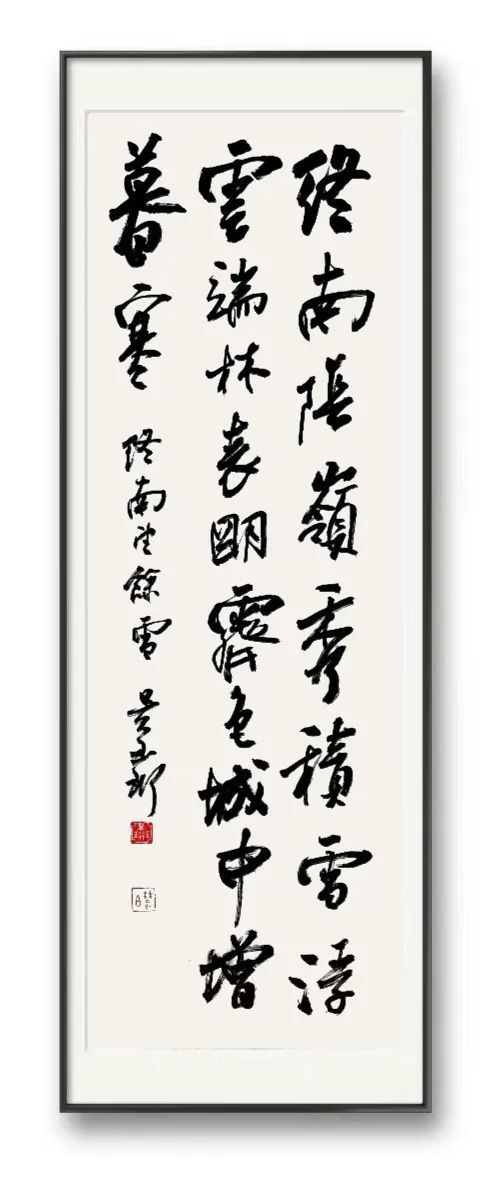 終南陰嶺秀積雪浮
雲端林表明霽色城中增
暮寒 終南望餘雪 吳玉